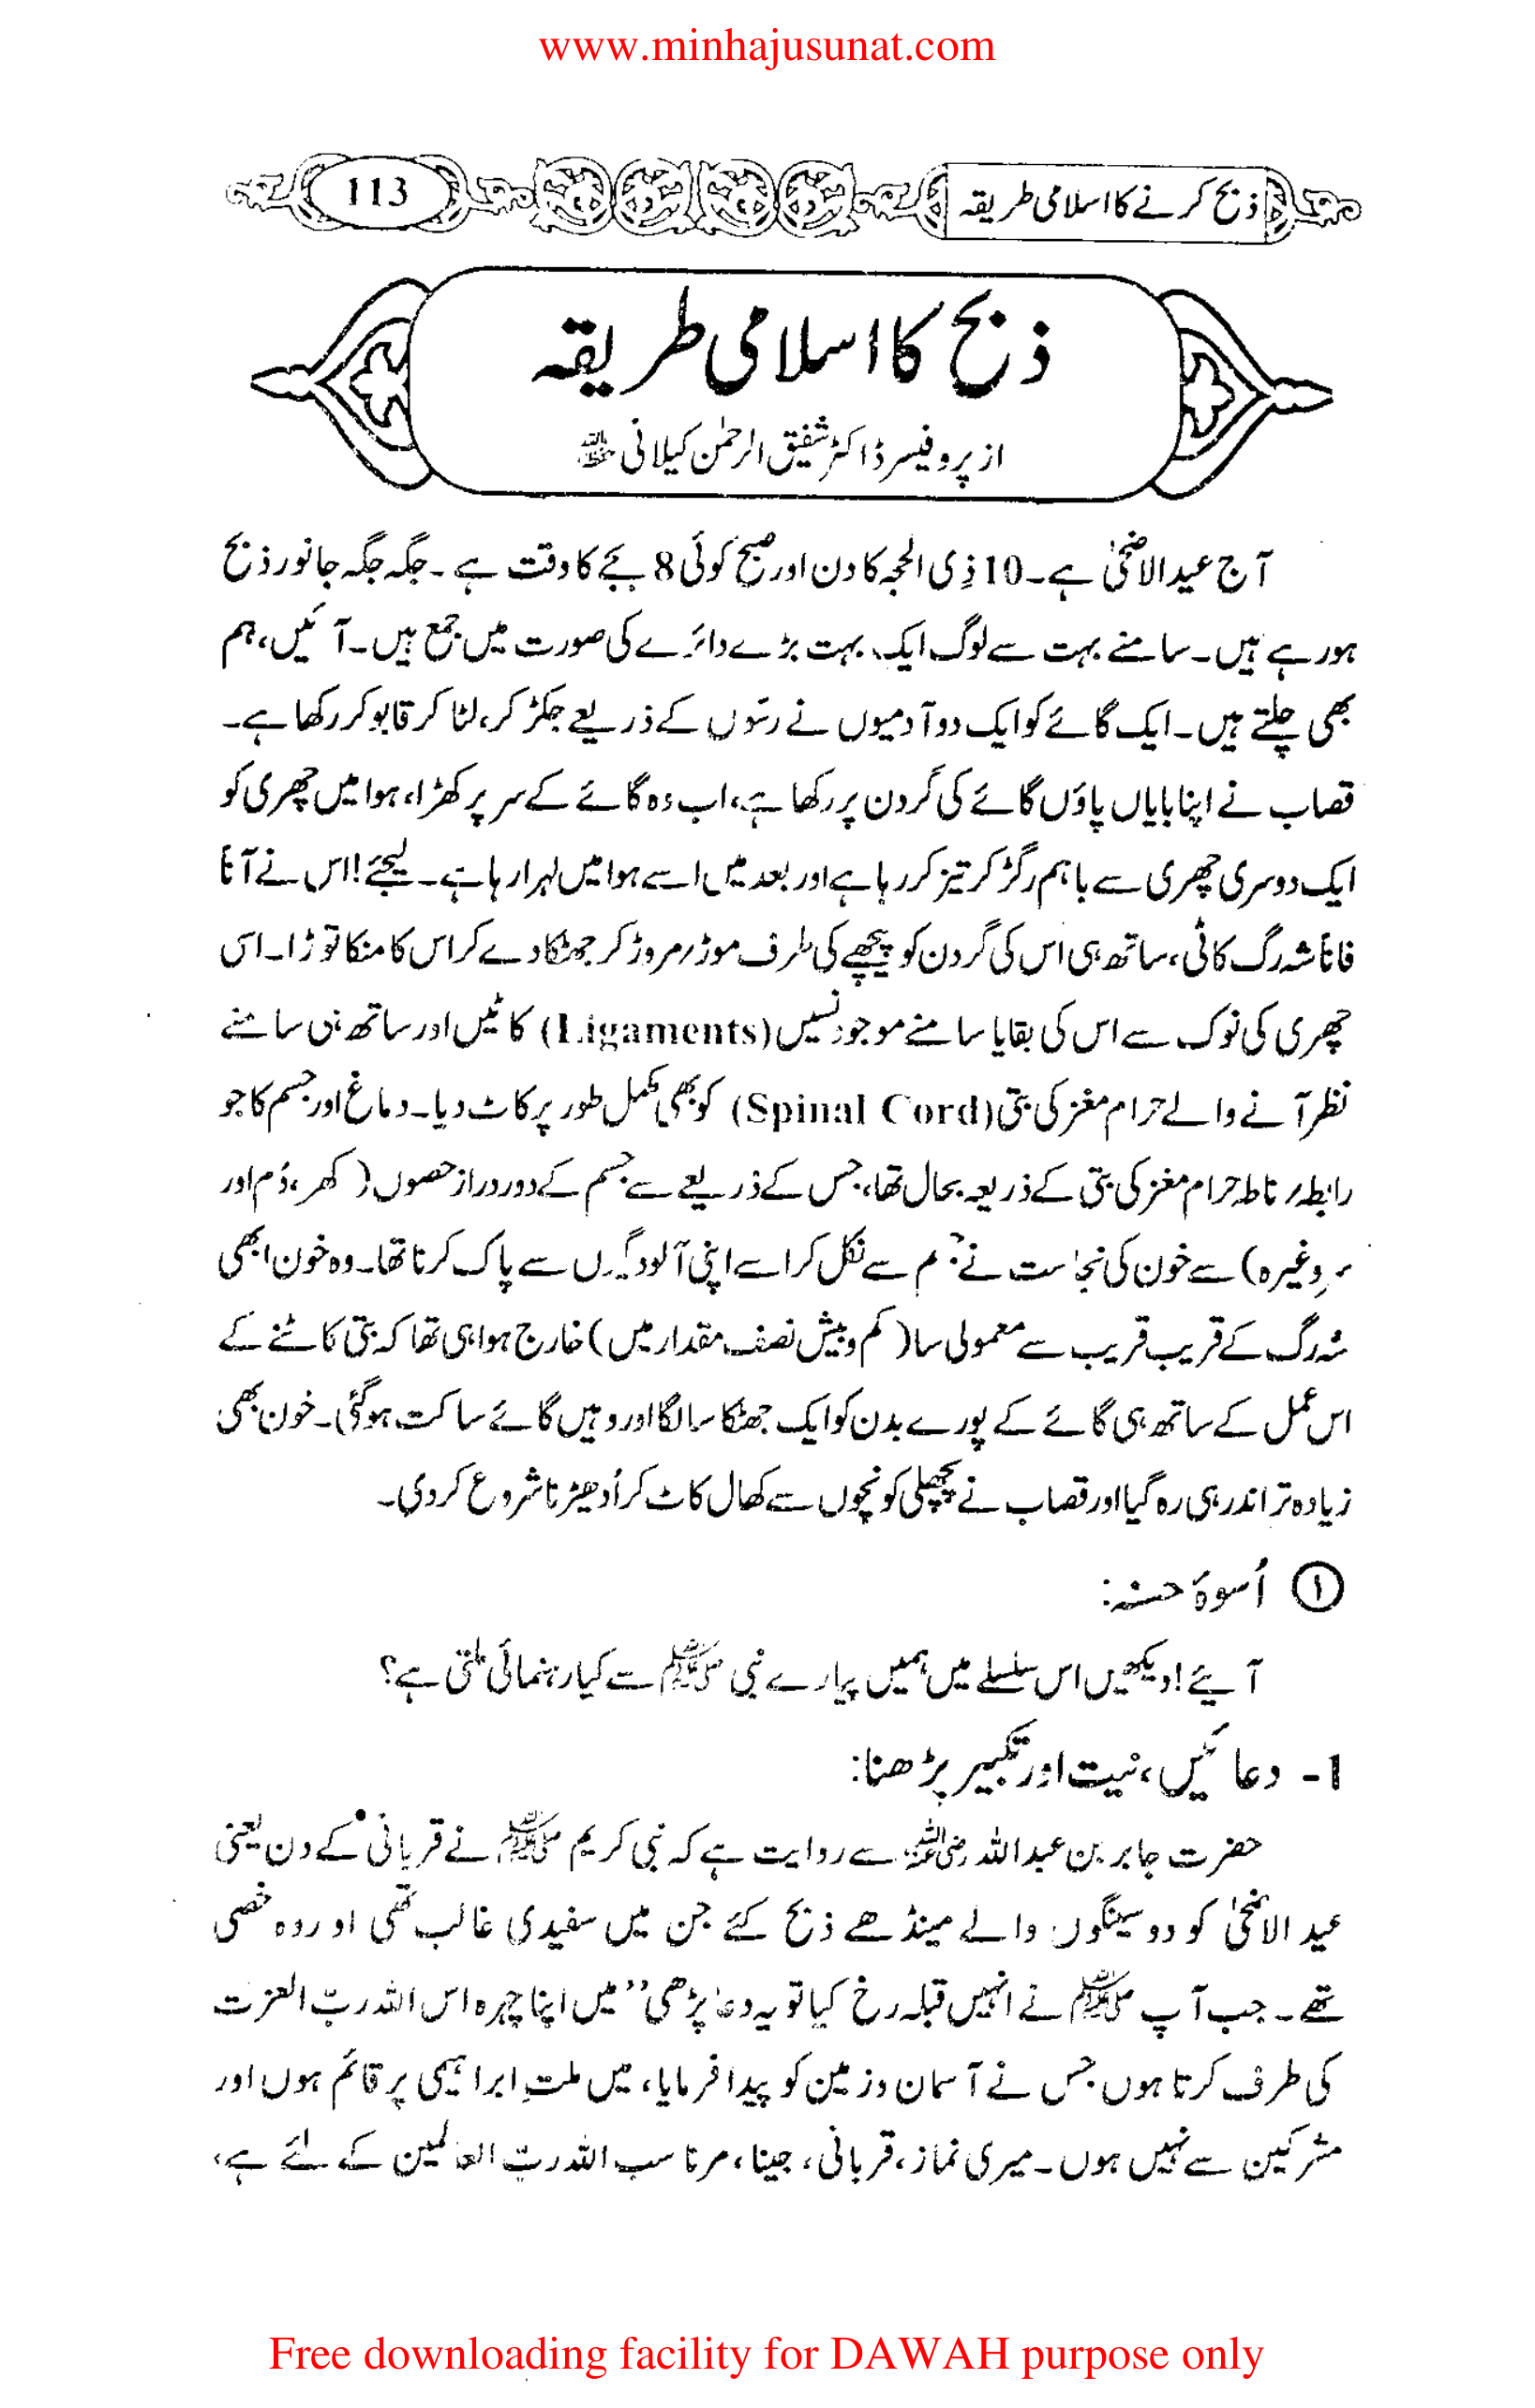 www.minhajusunat.com
ذبح کرنے کا اسلامی طریقہ 113
ذبح کا اسلامی طریقہ
از پروفیسر ڈاکٹر شفیق الرحمٰن کیلانی
آج عید الاضحیٰ ہے۔ 10 ذِی الحجہ کا دن اور صبح کوئی 8 بجے کا وقت ہے۔ جگہ جگہ جانور ذبح
ہو رہے ہیں۔ سامنے بہت سے لوگ ایک بہت بڑے دائرے کی صورت میں جمع ہیں۔ آئیں، ہم
بھی چلتے ہیں۔ ایک گائے کو ایک دو آدمیوں نے رسّوں کے ذریعے جکڑ کر، لٹا کر قابو کر رکھا ہے۔
قصاب نے اپنا بایاں پاؤں گائے کی گردن پر رکھا ہے، اب وہ گائے کے سر پر کھڑا، ہوا میں چھری کو
ایک دوسری چھری سے باہم رگڑ کر تیز کر رہا ہے اور بعد میں اسے ہوا میں لہرا رہا ہے۔ لیجئے! اس نے آناً
فاناً شہ رگ کاٹی، ساتھ ہی اس کی گردن کو پیچھے کی طرف موڑ/مروڑ کر جھٹکا دے کر اس کا منکا توڑا۔ اسی
چھری کی نوک سے اس کی بقایا سامنے موجود نسیں (Ligaments) کاٹیں اور ساتھ ہی سامنے
نظر آنے والے حرام مغز کی بتی (Spinal Cord) کو بھی مکمل طور پر کاٹ دیا۔ دماغ اور جسم کا جو
رابطہ/ ناطہ حرام مغز کی بتی کے ذریعہ بحال تھا، جس کے ذریعے سے جسم کے دور دراز حصوں (کھر، دُم اور
سر وغیرہ) سے خون کی نجاست نے جسم سے نکل کر اسے اپنی آلودگیوں سے پاک کرنا تھا۔ وہ خون ابھی
شہ رگ کے قریب قریب سے معمولی سا (کم و بیش نصف مقدار میں) خارج ہوا ہی تھا کہ بتی کاٹنے کے
اس عمل کے ساتھ ہی گائے کے پورے بدن کو ایک جھٹکا سا لگا اور وہیں گائے ساکت ہو گئی۔ خون بھی
زیادہ تر اندر ہی رہ گیا اور قصاب نے پچھلی کونچوں سے کھال کاٹ کر اُدھیڑنا شروع کر دی۔
۱ اُسوۂ حسنہ:
آیئے! دیکھیں اس سلسلے میں ہمیں پیارے نبی ﷺ سے کیا رہنمائی ملتی ہے؟
1- دعائیں، نیت اور تکبیر پڑھنا:
حضرت جابر بن عبد اللہ رضی اللہ عنہ سے روایت ہے کہ نبی کریم ﷺ نے قربانی کے دن یعنی
عید الاضحیٰ کو دو سینگوں والے مینڈھے ذبح کئے جن میں سفیدی غالب تھی اور وہ خصی
تھے۔ جب آپ ﷺ نے انہیں قبلہ رخ کیا تو یہ دعا پڑھی ”میں اپنا چہرہ اس اللہ ربّ العزت
کی طرف کرتا ہوں جس نے آسمان و زمین کو پیدا فرمایا، میں ملتِ ابراہیمی پر قائم ہوں اور
مشرکین سے نہیں ہوں۔ میری نماز، قربانی، جینا، مرنا سب اللہ ربّ العالمین کے لئے ہے،
Free downloading facility for DAWAH purpose only